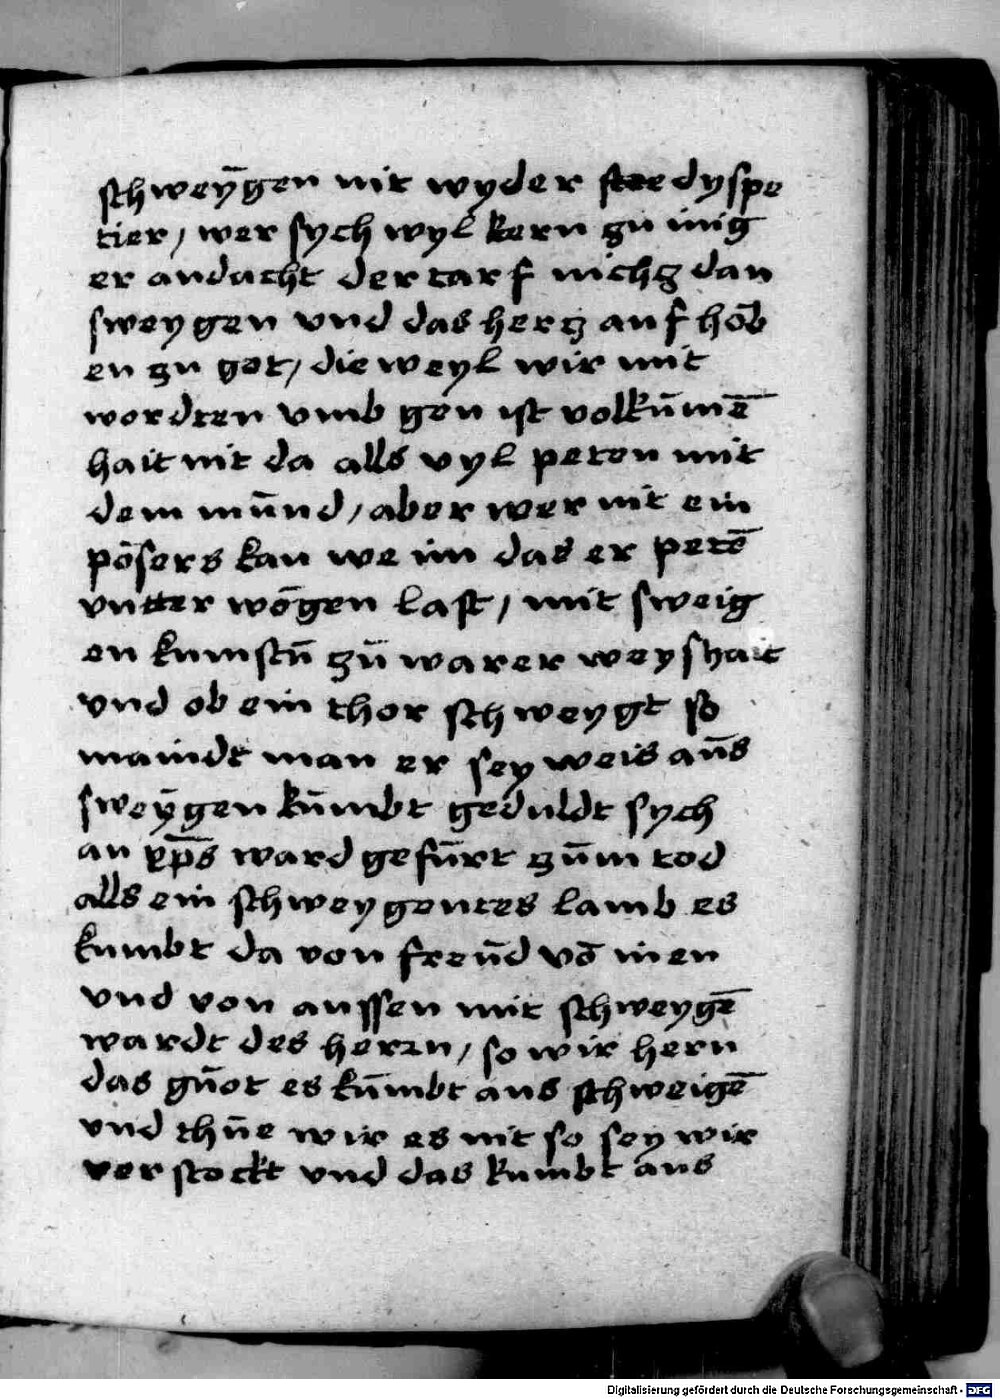 schweȳgen nit wyder stee dyspe
tier / wer sych wyl kern zu inig
er andacht der tarf nichz dan
sweygen vnd das hercz auf hōb
en zu got / die weyl wir mit
wordten vmb gen ist volkūmē
hait nit da alls vyl peton mit
dem mūnd / aber wer nit ein
pōsers kan we im das er petē
vntter wōgen last / mit sweig
en kumstū zū warer weyshait
vnd ob ein thor schweygt so
maindt man er sey weis aūs
sweȳgen kūmbt geduldt sych
an xp̄s ward gefūrt zūm tod
alls ein schweygentes lamb es
kumbt da von freūd vō inen
vnd von aussen mit schweygē
wardt des herrn / so wir hern
das gūot es kūmbt aus schweigē
vnd thūe wir es nit so sey wir
verstockt vnd das kumbt aus
Digitalisierung gefördert durch die Deutsche Forschungsgemeinschaft - DFG